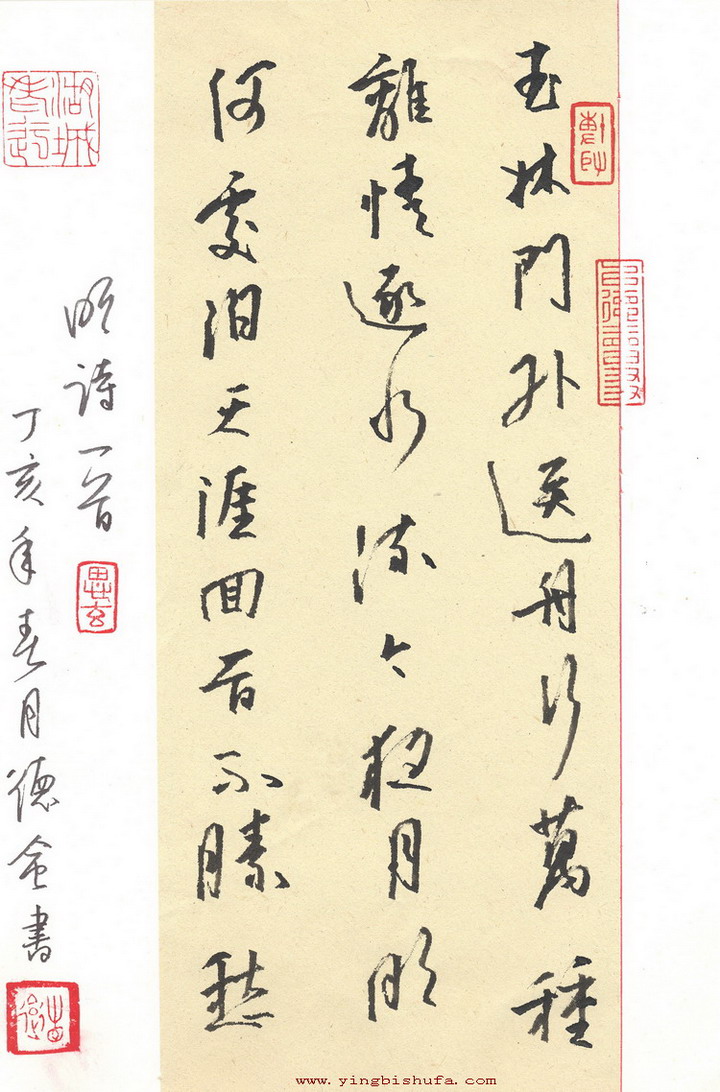 武林門外送舟行萬種
離情逐水流今夜月明
何處泊天涯回首不勝愁
明诗一首
思玄
丁亥年春月德金書
www.yingbishufa.com